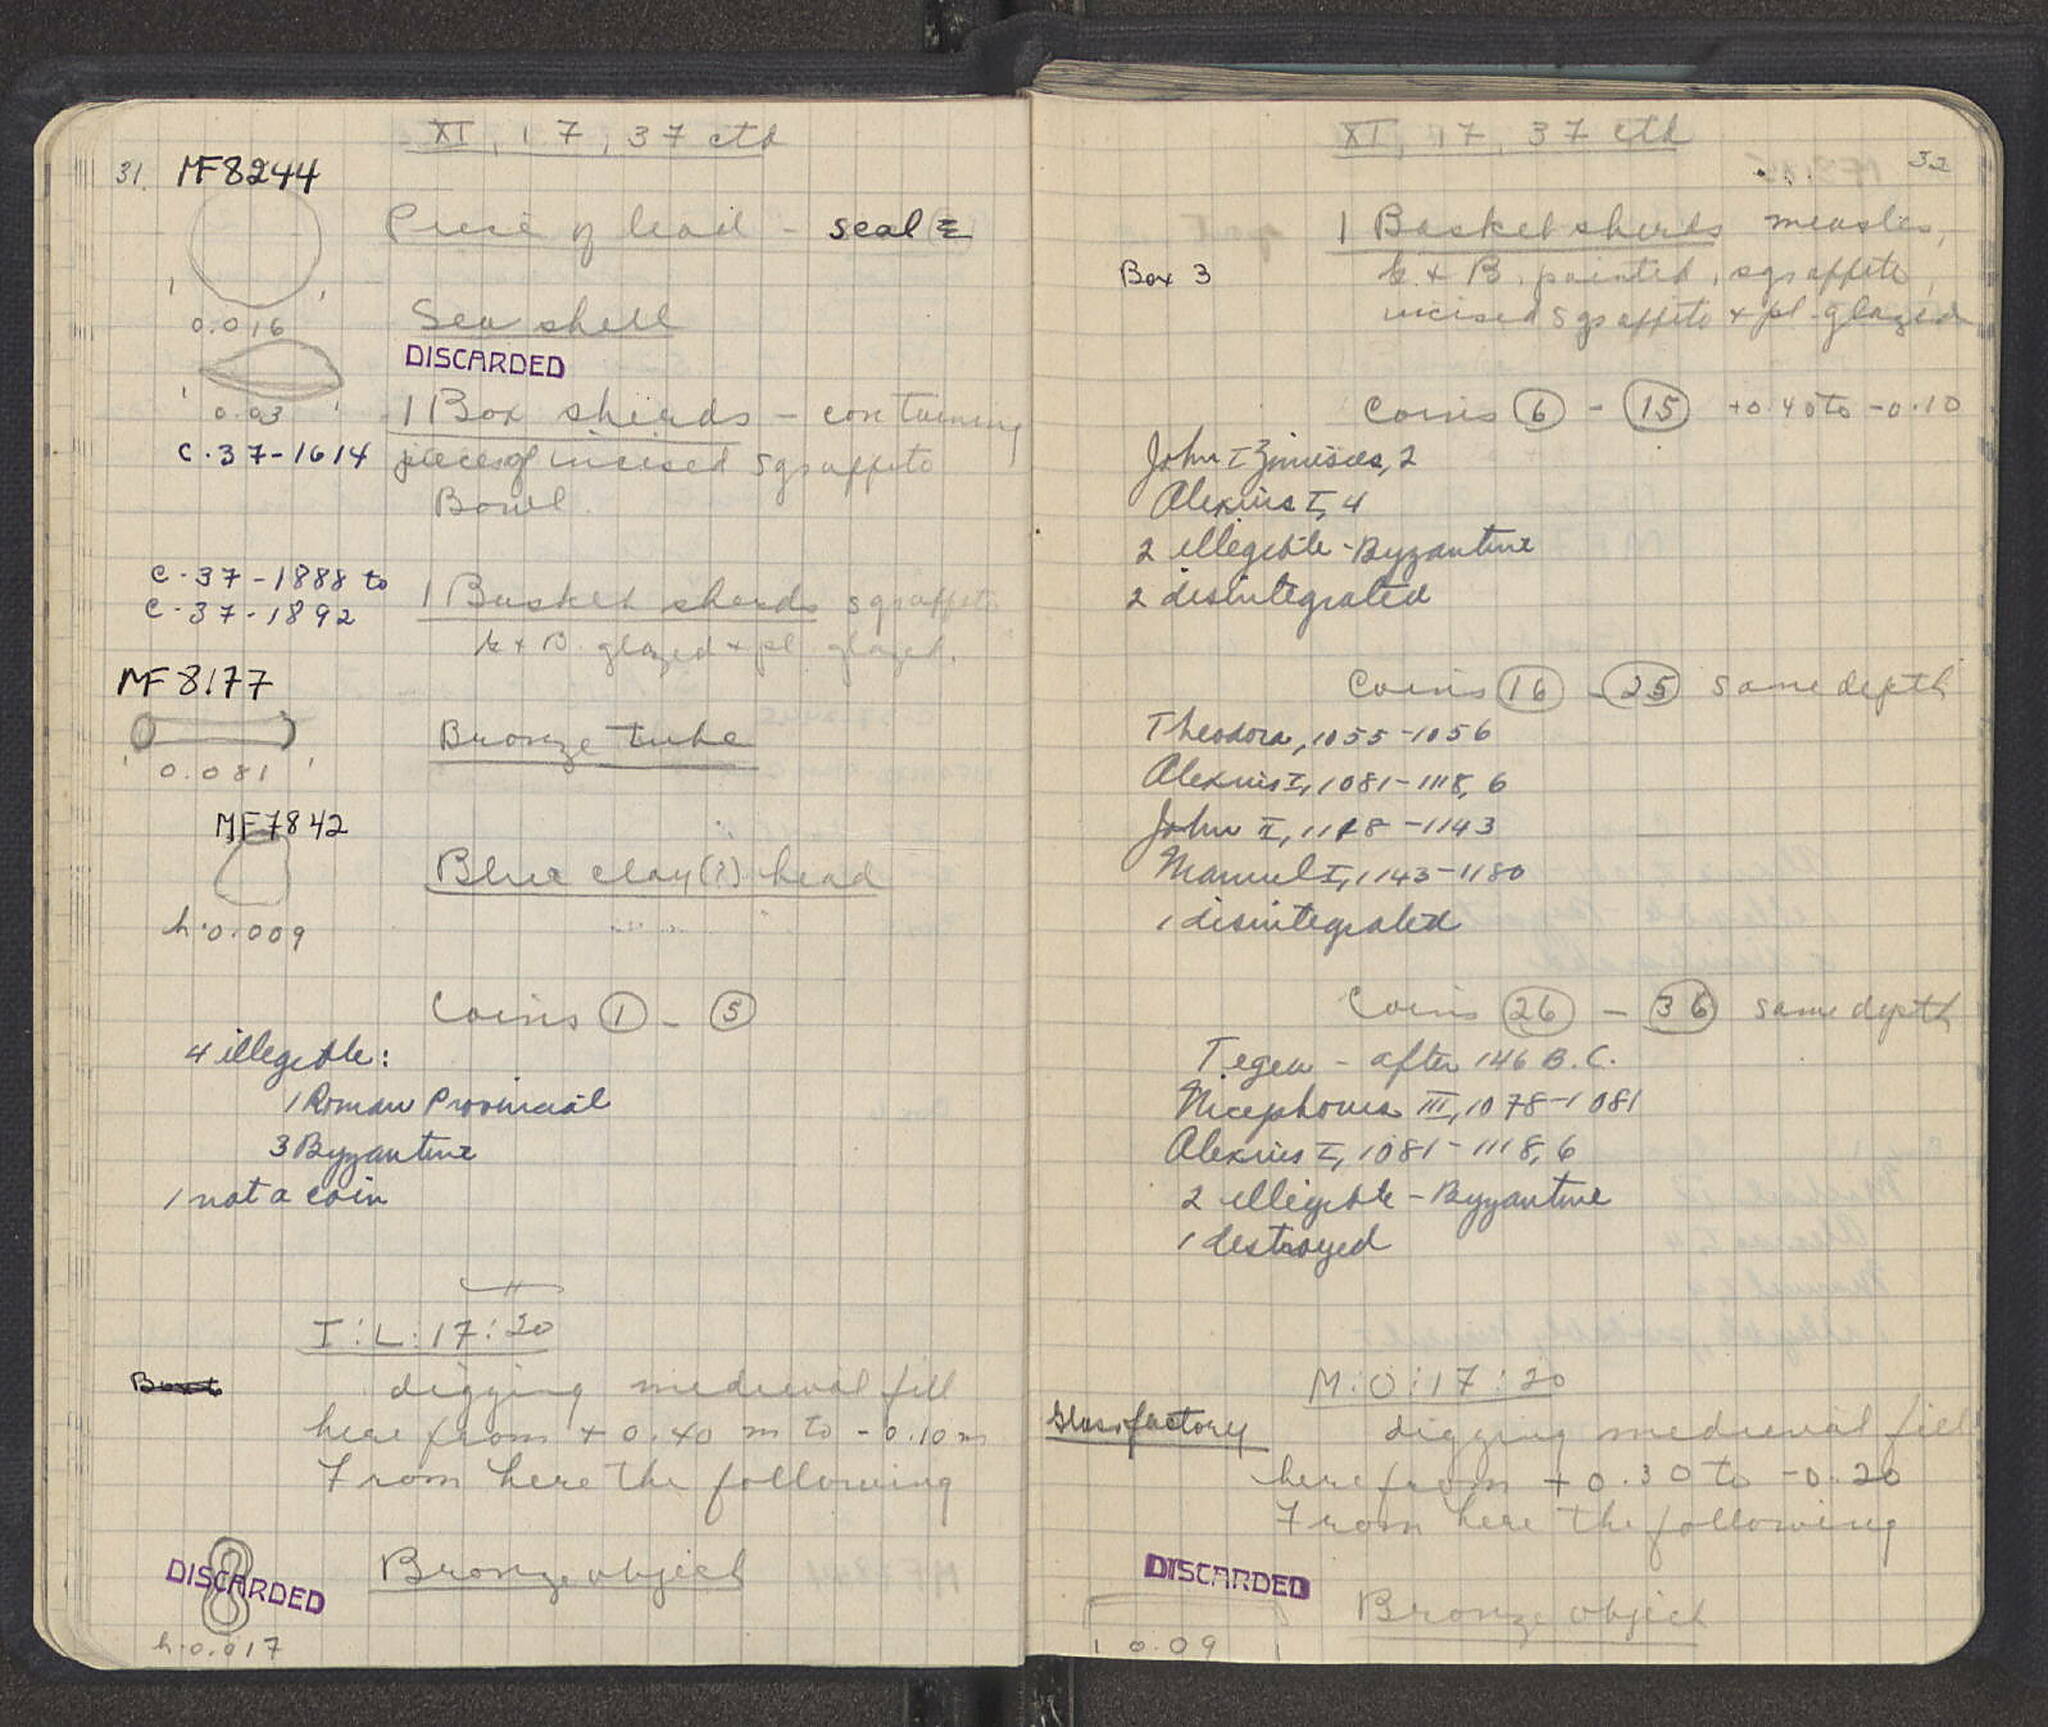 XI, 17, 37 ctd
31. MF8244
Piece of lead - seal
0.016
Sea shell
DISCARDED
0.03
1 Box sherds - containing
C.37-1614 pieces of incised sgraffito
Bowl.
C.37-1888 to
C.37-1892
1 Basket sherds sgraffito
G + B. glazed + pl glazed.
MF 8177
Bronze tube
0.081
MF7842
Blue clay(?) head
h. 0.009
Coins 1 - 5
4 illegible:
1 Roman Provincial
3 Byzantine
1 not a coin
I:L:17:20
digging medieval fill
here from +0.40 m to -0.10 m
From here the following
DISCARDED
Bronze object
h. 0.017
XI, 17, 37 ctd
32
1 Basket sherds measles,
Box 3
G + B. painted, sgraffito,
incised sgraffito + pl-glazed
Coins 6 - 15 +0.40 to -0.10
John I Zimisces, 2
Alexius I, 4
2 illegible - Byzantine
2 disintegrated
Coins 16 - 25 same depth
Theodora, 1055-1056
Alexius I, 1081-1118, 6
John II, 1118-1143
Manuel I, 1143-1180
1 disintegrated
Coins 26 - 36 same depth
Tegea - after 146 B.C.
Nicephorus III, 1078-1081
Alexius I, 1081-1118, 6
2 illegible - Byzantine
1 destroyed
M:O:17:20
Glass factory
digging medieval fill
here from +0.30 to -0.20
From here the following
DISCARDED
Bronze object
0.09